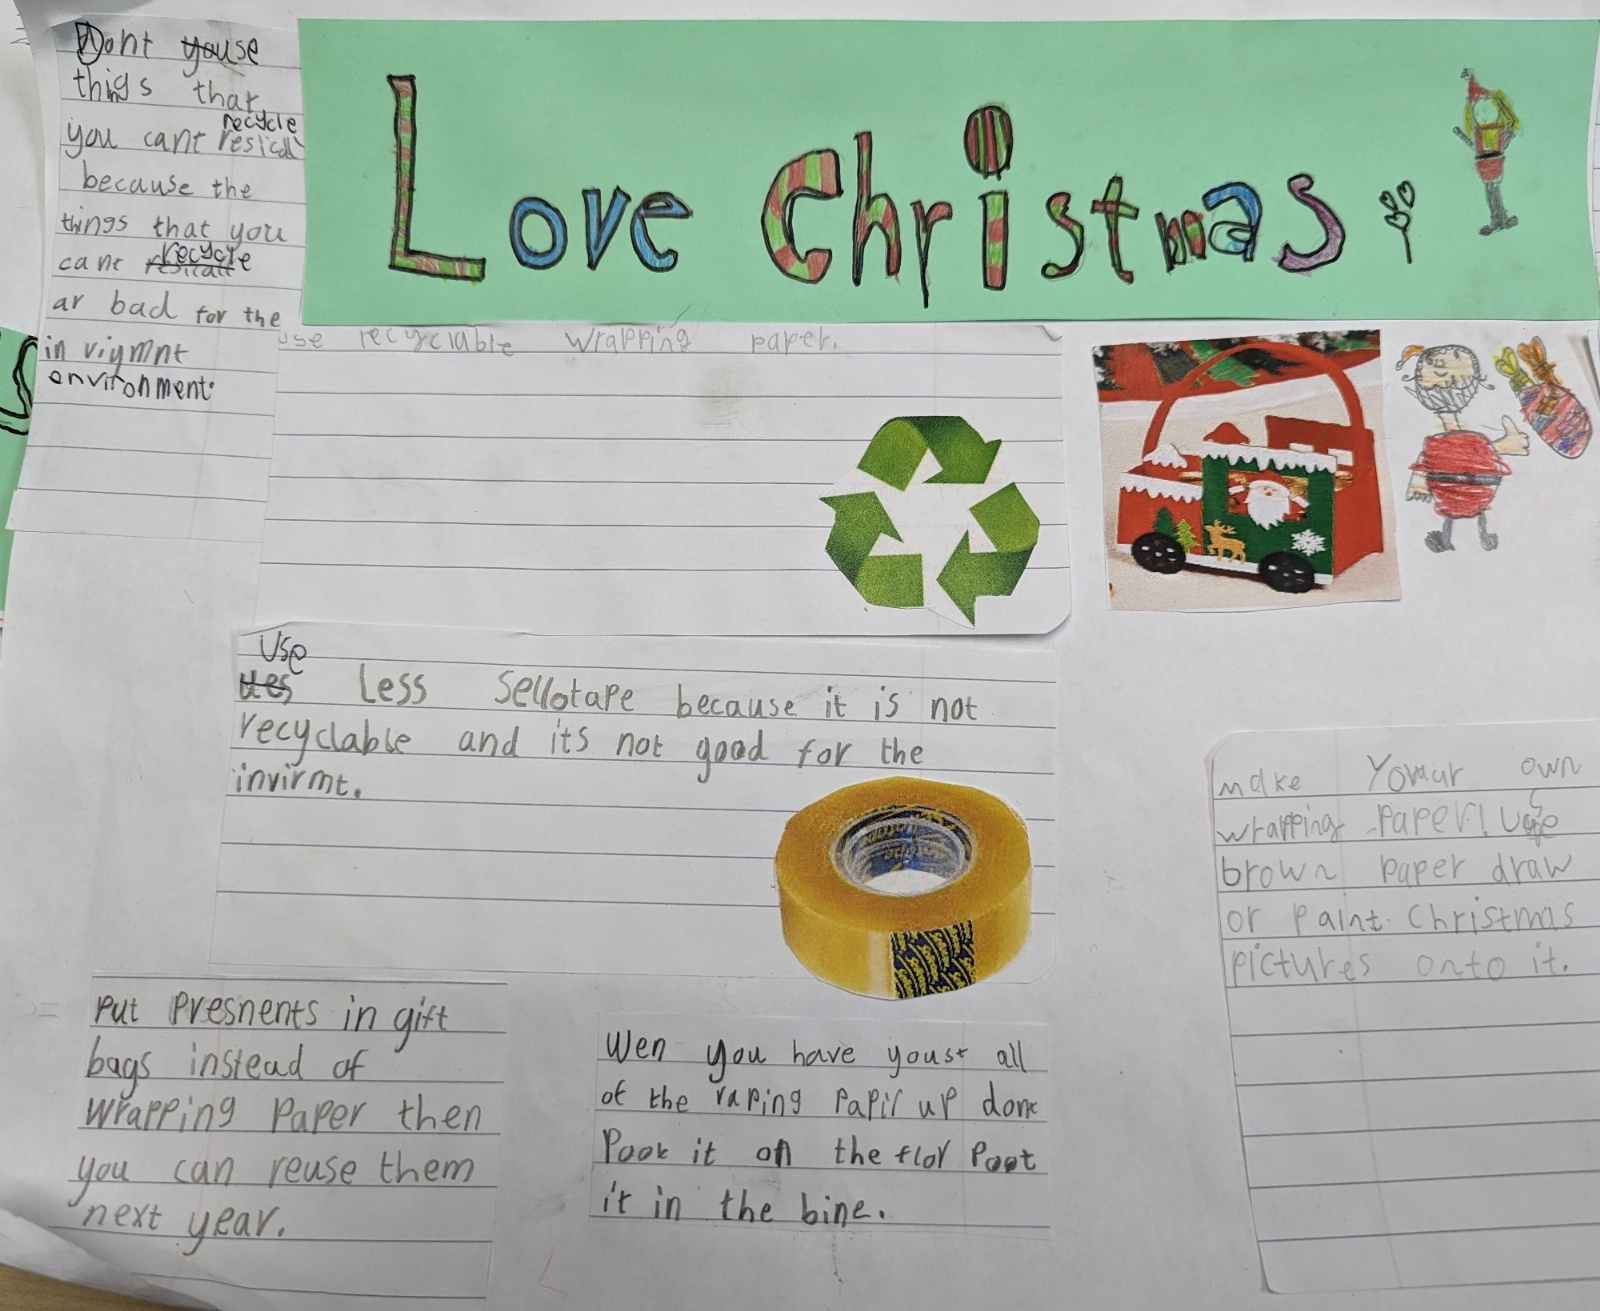 Dont youse
things that
you cant resicall
recycle
because the
things that you
cant resicall
recycle
ar bad for the
in viymnt
environment
Love Christmas
use recyclable wrapping paper.
Use
ues Less Sellotape because it is not
recyclable and its not good for the
invirmt.
make Your own
wrapping paper! Use
brown paper draw
or paint Christmas
pictures onto it.
Put Presnents in gift
bags instead of
wrapping Paper then
you can reuse them
next year.
Wen you have youst all
of the raping Papir up dont
Poot it on the flor Poot
it in the bine.